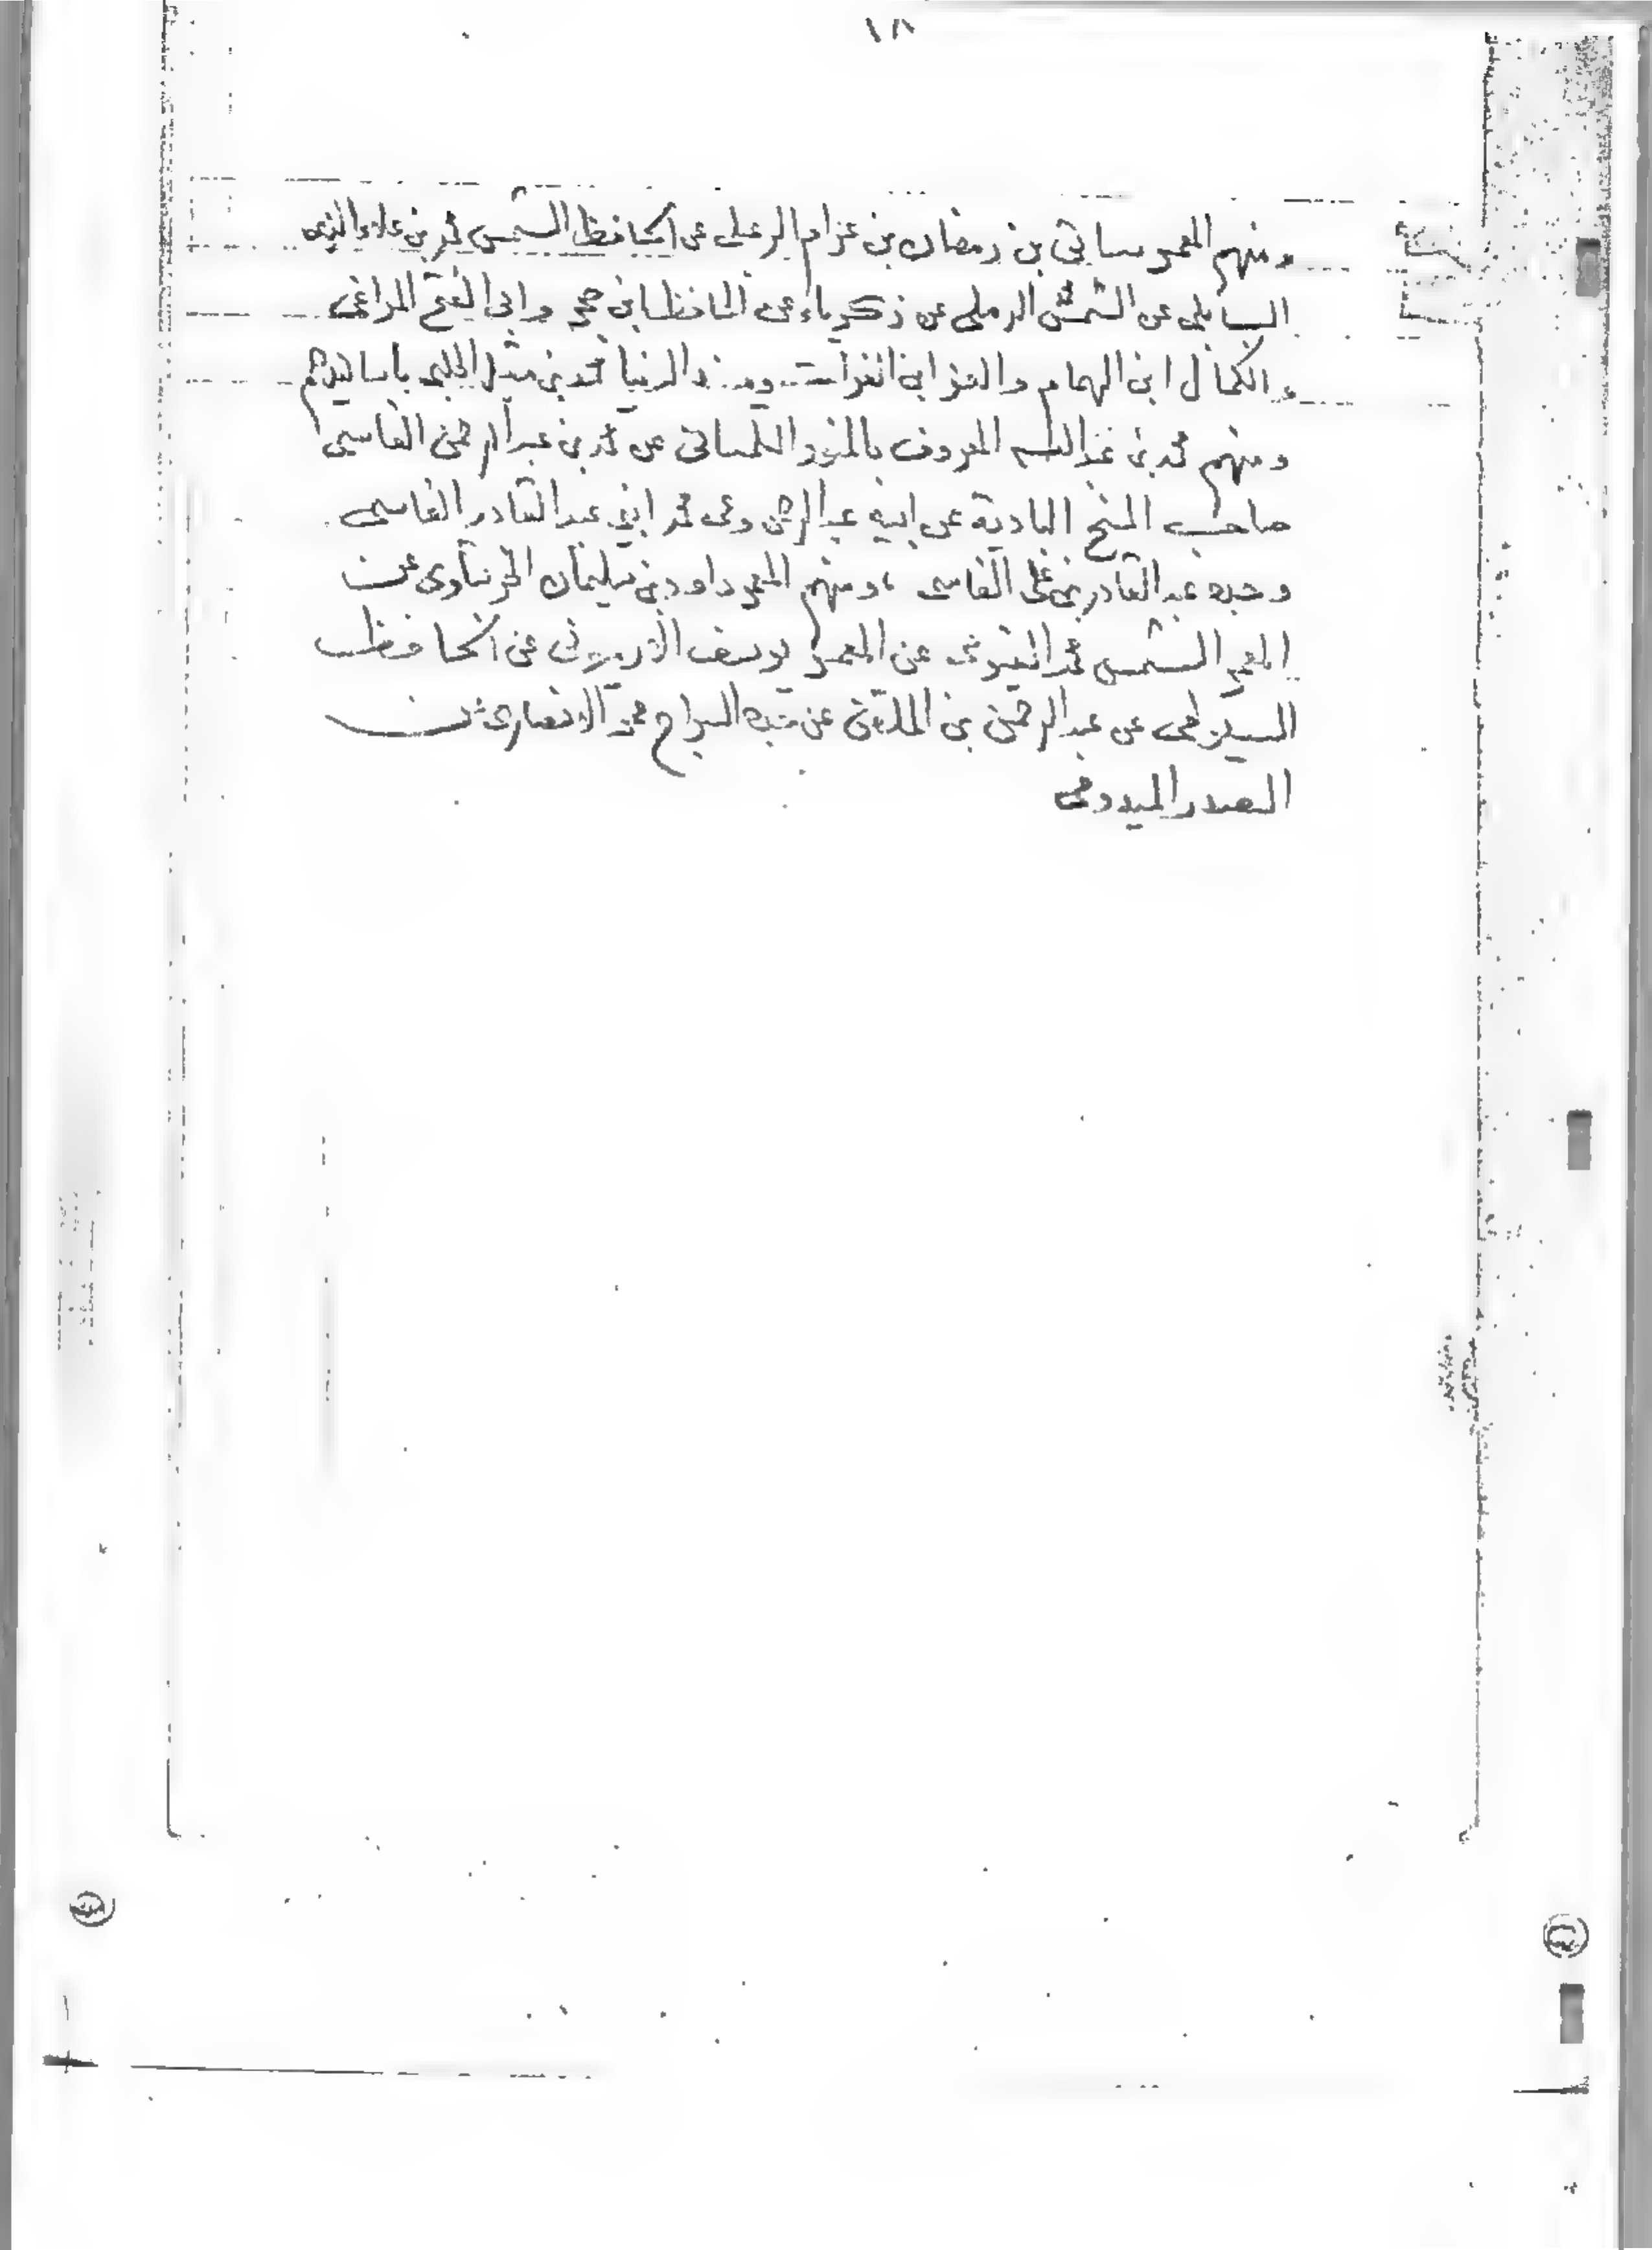 ١٨
ومنهم المعمر سابق بن رمضان بن عزام الزعبلي عن الحافظ الشمس محمد بن علاء الدين
البابلي عن الشمس الرملي عن زكرياء عن الحافظ ابن حجر وابي الفتح المراغي
والكمال ابن الهمام والعز ابن الفرات ومسند الدنيا محمد بن مقبل الحلبي باسانيدهم
ومنهم محمد بن عبد الله المعروف بالمنور التلمساني عن محمد بن عبد الرحمن الفاسي
صاحب المنح البادية عن ابيه عبد الرحمن وعن محمد ابني عبد القادر الفاسي
وجده عبد القادر بن علي الفاسي ، ومنهم المعمر داود بن سليمان الخربتاوي عن
المعمر الشمس محمد الفيومي عن المعمر يوسف الارميوني عن الحافظ
السيوطي عن عبد الرحمن بن الملقن عن جده السراج عمر الانصاري عن
الصدر الميدومي